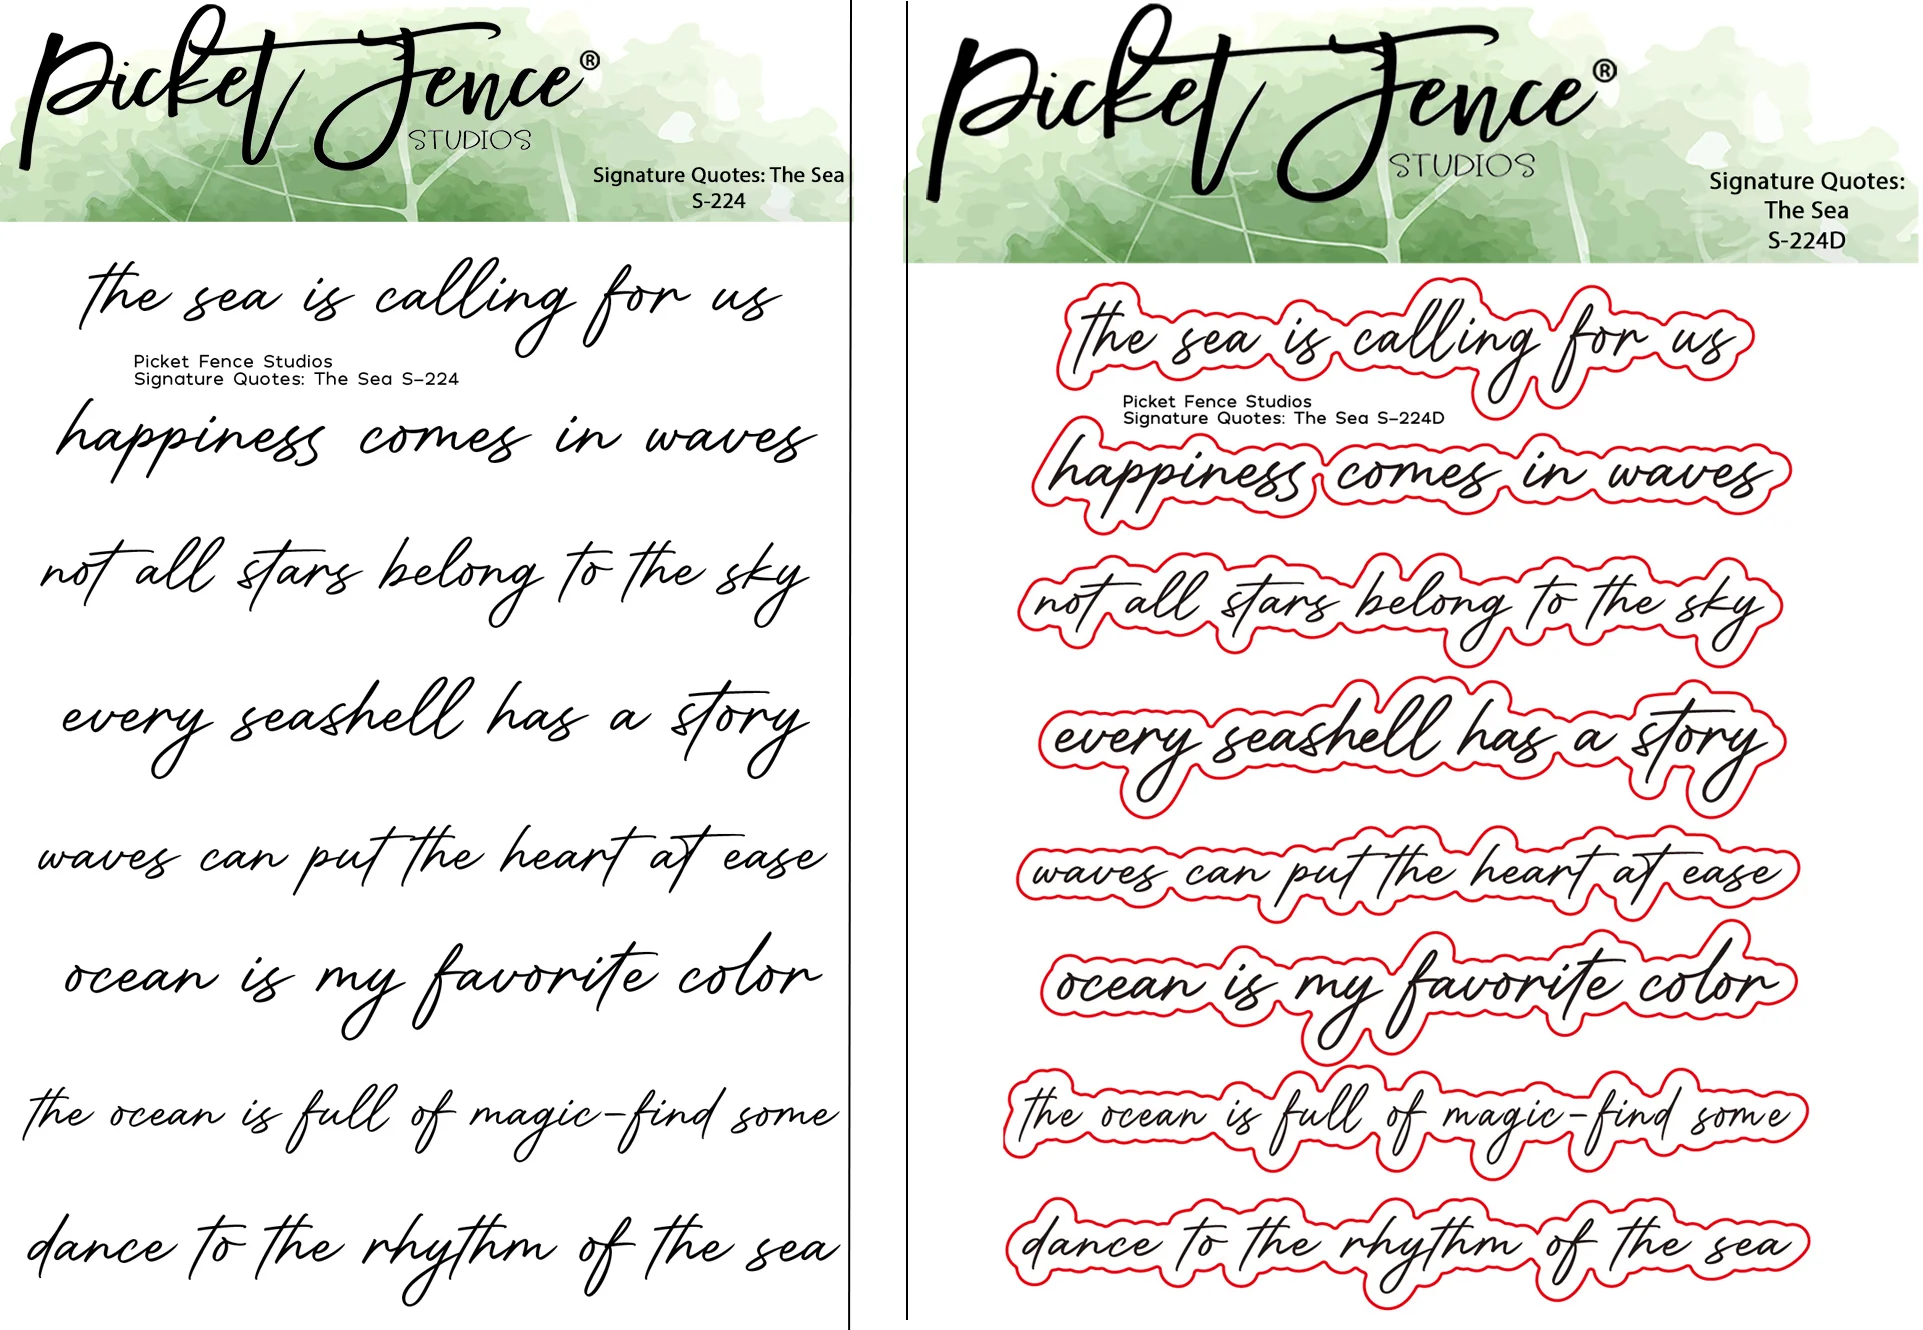 Picket Fence®
STUDIOS
Signature Quotes: The Sea
S-224
the sea is calling for us
Picket Fence Studios
Signature Quotes: The Sea S-224
happiness comes in waves
not all stars belong to the sky
every seashell has a story
waves can put the heart at ease
ocean is my favorite color
the ocean is full of magic-find some
dance to the rhythm of the sea
Picket Fence®
STUDIOS
Signature Quotes:
The Sea
S-224D
the sea is calling for us
Picket Fence Studios
Signature Quotes: The Sea S-224D
happiness comes in waves
not all stars belong to the sky
every seashell has a story
waves can put the heart at ease
ocean is my favorite color
the ocean is full of magic-find some
dance to the rhythm of the sea